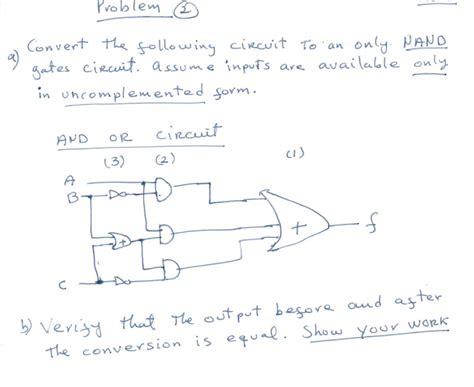 Problem 2
a) Convert the following circuit to an only NAND
gates circuit. Assume inputs are available only
in uncomplemented form.
AND OR circuit
(3) (2) (1)
A
B
+
+
f
C
b) Verify that the output before and after
the conversion is equal. Show your work